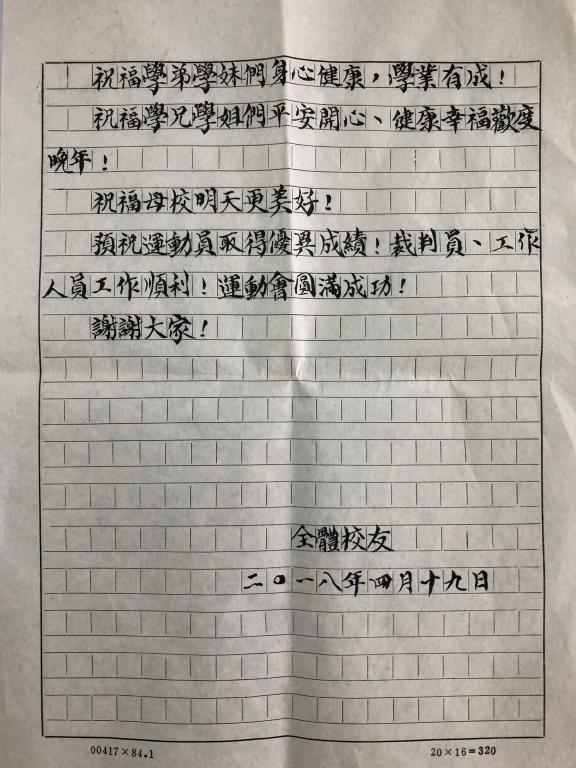 祝福學弟學妹們身心健康，學業有成！
祝福學兄學姐們平安開心、健康幸福歡度
晚年！
祝福母校明天更美好！
預祝運動員取得優異成績！裁判員、工作
人員工作順利！運動會圓滿成功！
謝謝大家！
全體校友
二〇一八年四月十九日
00417×84.1
20×16=320